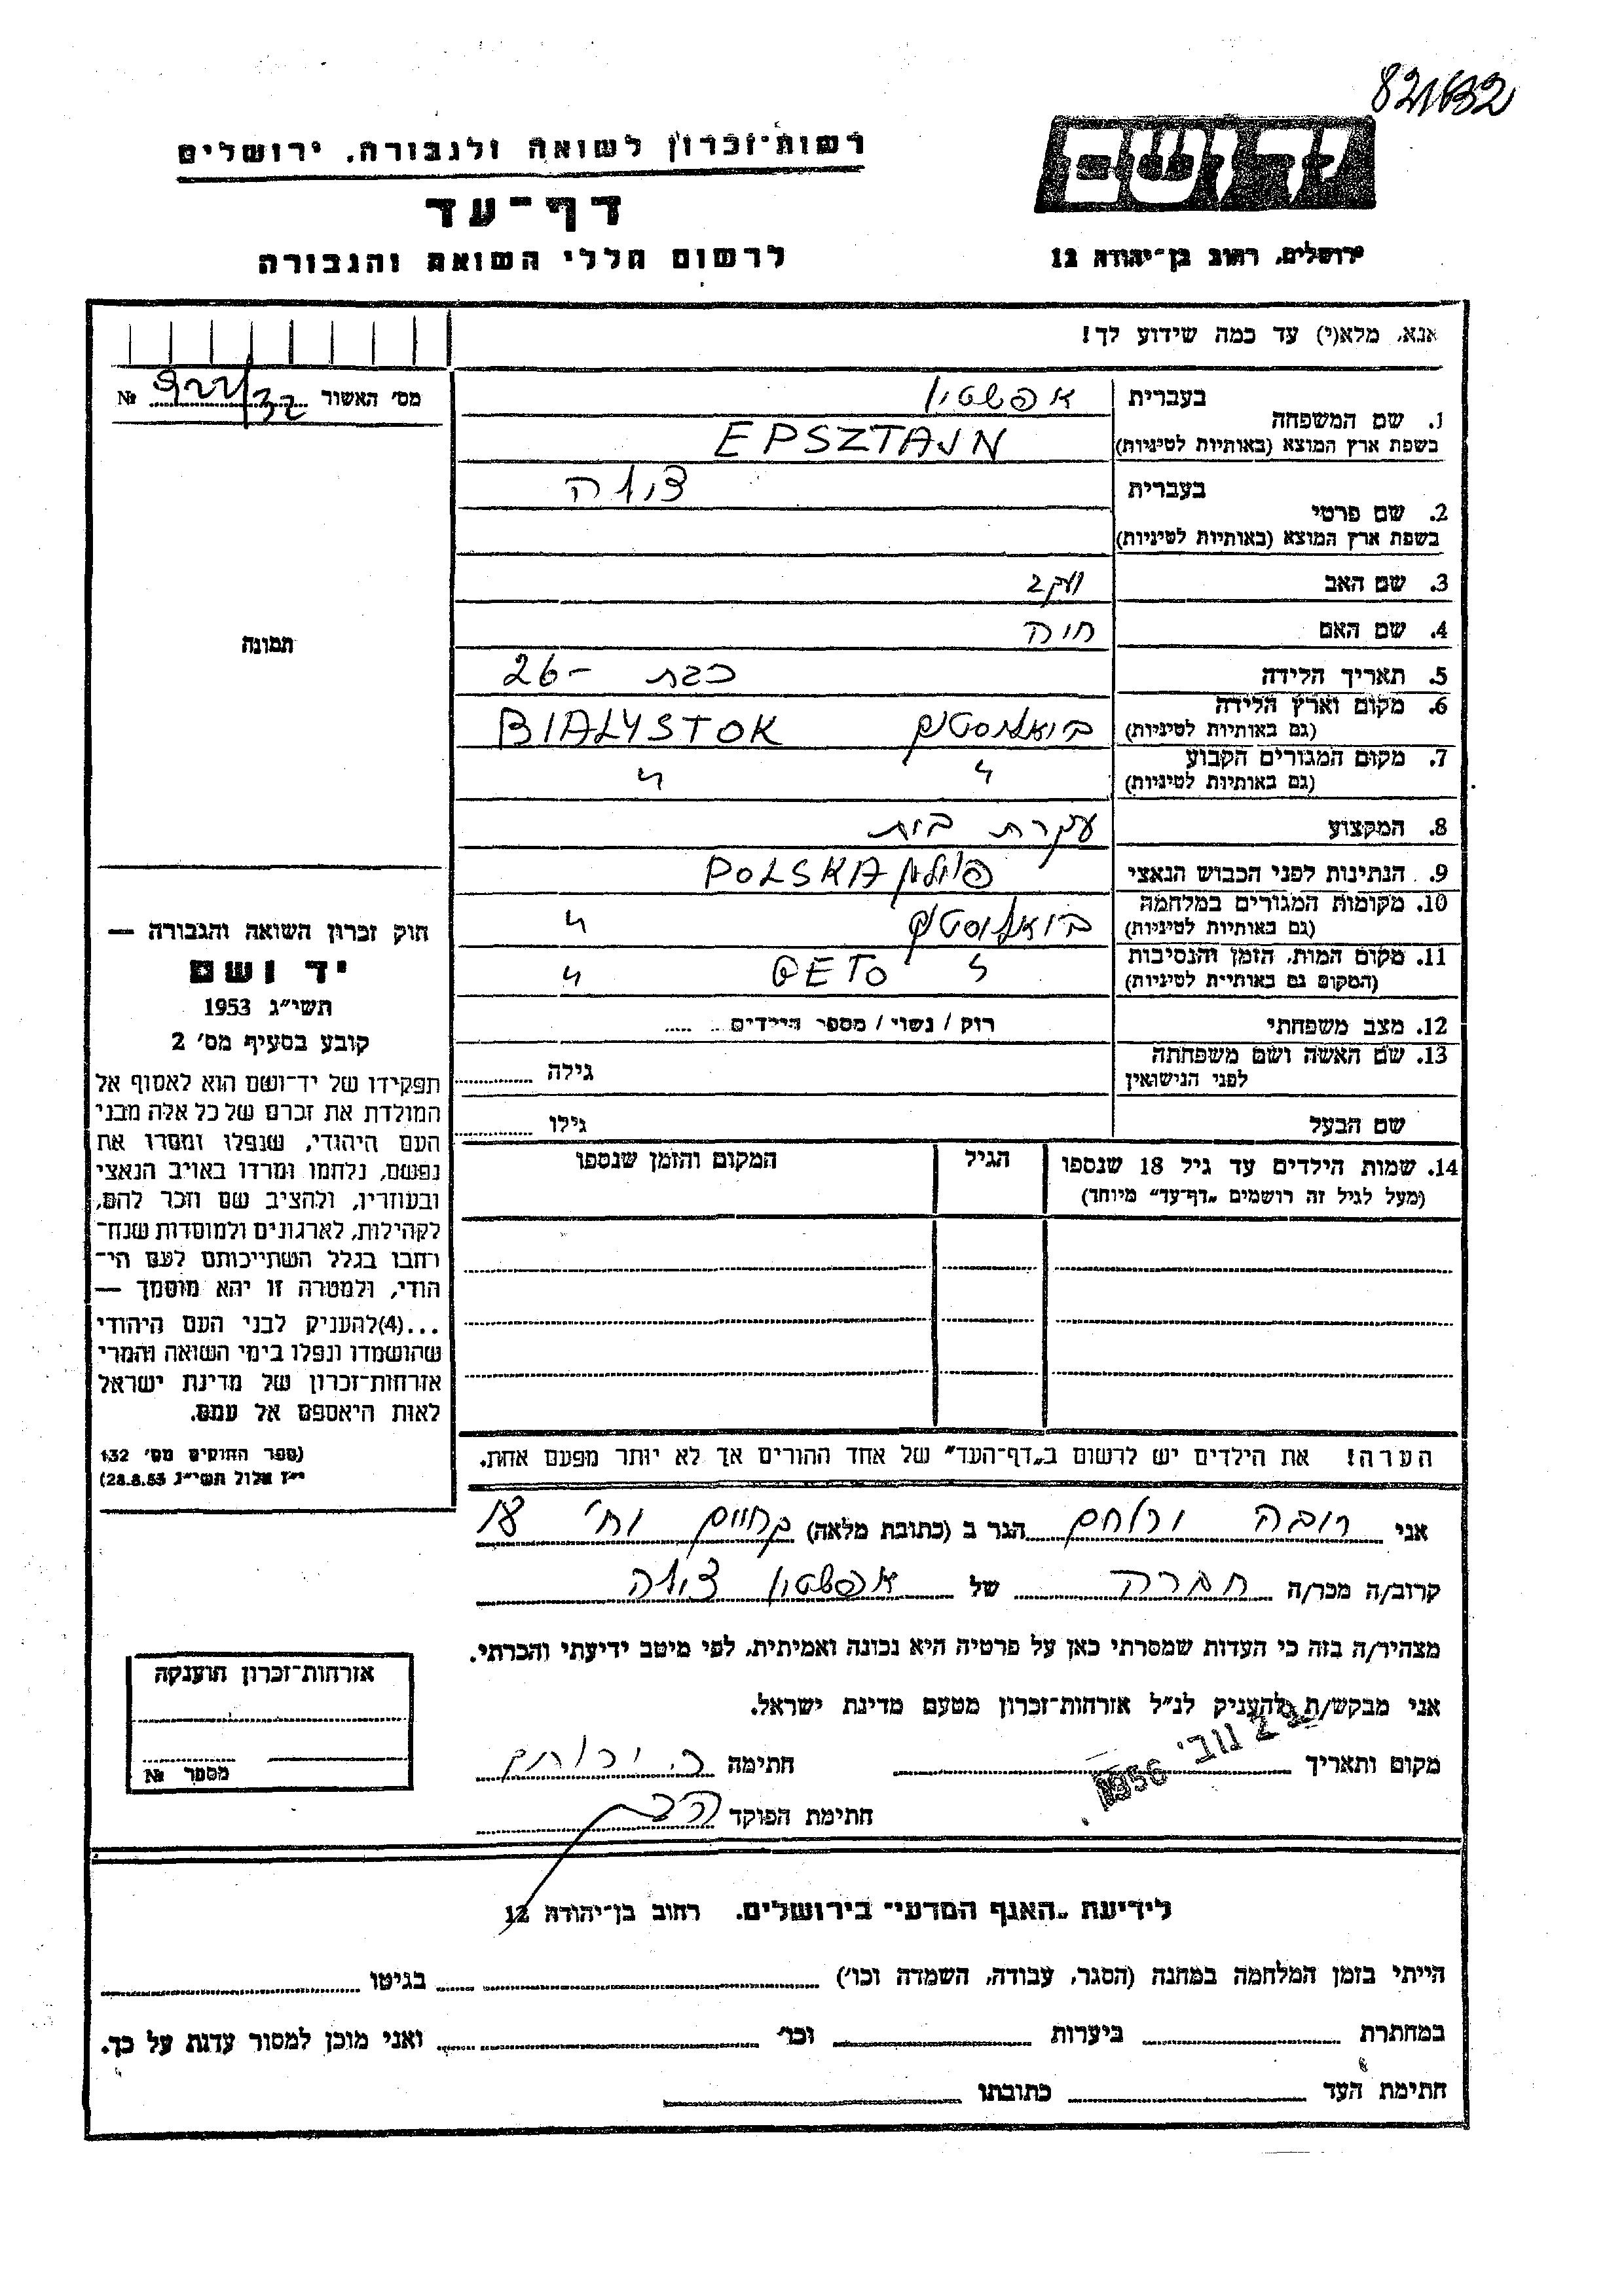 רשות־זכרון לשואה ולגבורה, ירושלים
דף־עד
לרשום חללי השואה והגבורה
יד ושם
ירושלים, רחוב בן־יהודה 12
אנא, מלא(י) עד כמה שידוע לך!
מס׳ האשור №
1. שם המשפחה
בעברית אפשטין
בשפת ארץ המוצא (באותיות לטיניות) EPSZTAJN
2. שם פרטי
בעברית
בשפת ארץ המוצא (באותיות לטיניות)
3. שם האב יעקב
4. שם האם חיה
5. תאריך הלידה כבת -26
6. מקום וארץ הלידה ביאליסטוק BIALYSTOK
(גם באותיות לטיניות)
7. מקום המגורים הקבוע 〃 〃
(גם באותיות לטיניות)
8. המקצוע עקרת בית
9. הנתינות לפני הכבוש הנאצי פולין POLSKA
10. מקומות המגורים במלחמה ביאליסטוק 〃
(גם באותיות לטיניות)
11. מקום המות, הזמן והנסיבות 〃 GETO 〃
(המקום גם באותיות לטיניות)
12. מצב משפחתי רוק / נשוי / מספר הילדים
13. שם האשה ושם משפחתה גילה
לפני הנישואין
שם הבעל גילו
14. שמות הילדים עד גיל 18 שנספו הגיל המקום והזמן שנספו
(מעל לגיל זה רושמים „דף־עד״ מיוחד)
הערה! את הילדים יש לרשום ב„דף־העד״ של אחד ההורים אך לא יותר מפעם אחת.
תמונה
חוק זכרון השואה והגבורה —
יד ושם
תשי״ג 1953
קובע בסעיף מס׳ 2
תפקידו של יד־ושם הוא לאסוף אל
המולדת את זכרם של כל אלה מבני
העם היהודי, שנפלו ומסרו את
נפשם, נלחמו ומרדו באויב הנאצי
ובעוזריו, ולהציב שם וזכר להם,
לקהילות, לארגונים ולמוסדות שנח־
רחבו בגלל השתייכותם לעם הי־
הודי, ולמטרה זו יהא מוסמך —
...(4)להעניק לבני העם היהודי
שהושמדו ונפלו בימי השואה והמרי
אזרחות־זכרון של מדינת ישראל
לאות היאספם אל עמם.
(ספר החוקים מס׳ 132
י״ז אלול תשי״ג 28.8.53)
אני הגר ב (כתובת מלאה)
קרוב/ה מכר/ה חברה של אפשטין
מצהיר/ה בזה כי העדות שמסרתי כאן על פרטיה היא נכונה ואמיתית, לפי מיטב ידיעתי והכרתי.
אני מבקש/ת להעניק לנ״ל אזרחות־זכרון מטעם מדינת ישראל.
מקום ותאריך נוב׳ 1956 חתימה
חתימת הפוקד
אזרחות־זכרון הוענקה
מספר №
לידיעת „האגף המדעי״ בירושלים, רחוב בן־יהודה 12
הייתי בזמן המלחמה במחנה (הסגר, עבודה, השמדה וכו׳) בגיטו
במחתרת ביערות וכו׳ ואני מוכן למסור עדות על כך.
חתימת העד כתובתו